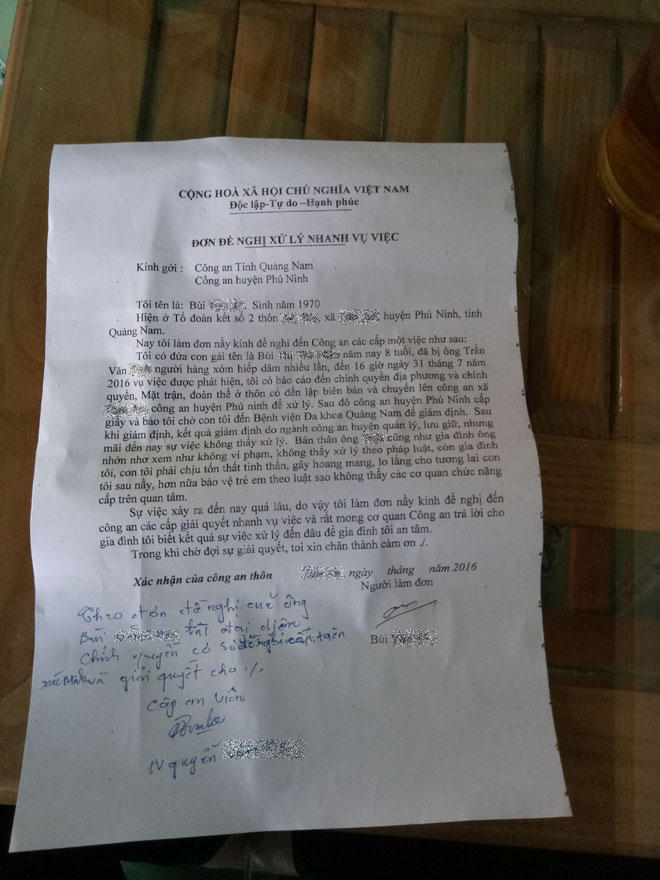 CỘNG HOÀ XÃ HỘI CHỦ NGHĨA VIỆT NAM
Độc lập-Tự do –Hạnh phúc
ĐƠN ĐỀ NGHỊ XỬ LÝ NHANH VỤ VIỆC
Kính gởi : Công an Tỉnh Quảng Nam
Công an huyện Phú Ninh
Tôi tên là: Bùi . Sinh năm 1970
Hiện ở Tổ đoàn kết số 2 thôn , xã huyện Phú Ninh, tỉnh
Quảng Nam.
Nay tôi làm đơn nầy kính đề nghị đến Công an các cấp một việc như sau:
Tôi có đứa con gái tên là Bùi năm nay 8 tuổi, đã bị ông Trần
Văn người hàng xóm hiếp dâm nhiều lần, đến 16 giờ ngày 31 tháng 7 năm
2016 vụ việc được phát hiện, tôi có báo cáo đến chính quyền địa phương và chính
quyền, Mặt trận, đoàn thể ở thôn có đến lập biên bản và chuyển lên công an xã
công an huyện Phú ninh để xử lý. Sau đó công an huyện Phú Ninh cấp
giấy và bảo tôi chở con tôi đến Bệnh viện Đa khoa Quảng Nam để giám định. Sau
khi giám định, kết quả giám định do ngành công an huyện quản lý, lưu giữ, nhưng
mãi đến nay sự việc không thấy xử lý. Bản thân ông cũng như gia đình ông
nhởn nhơ xem như không vi phạm, không thấy xử lý theo pháp luật, còn gia đình
tôi, con tôi phải chịu tổn thất tinh thần, gây hoang mang, lo lắng cho tương lai con
tôi sau nầy, hơn nữa bảo vệ trẻ em theo luật sao không thấy các cơ quan chức năng
cấp trên quan tâm.
Sự việc xảy ra đến nay quá lâu, do vậy tôi làm đơn nầy kính đề nghị đến
công an các cấp giải quyết nhanh vụ việc và rất mong cơ quan Công an trả lời cho
gia đình tôi biết kết quả sự việc xử lý đến đâu để gia đình tôi an tâm.
Trong khi chờ đợi sự giải quyết, toi xin chân thành cảm ơn ./.
Xác nhận của công an thôn ngày tháng năm 2016
Người làm đơn
Theo đơn đề nghị của ông
Bùi
Bùi
Chính quyền cơ sở đề nghị cấp trên
giải quyết cho ./.
Công an viên
quyền